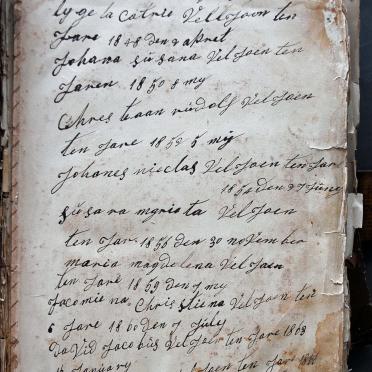 lyge la catrie Vellsoen ten
Jare 1848 den 2 akret
Johana susana Velsoen ten
Jaren 1850 8 my
Chres teaan rudolf Velsoen
ten Jare 1852 5 my
Johanes nicclas Velsoen ten Jar
1854 den 27 Juney
susara mgrieta Velsoen
ten Jar 1856 den 30 november
maria magdelena Velsoen
ten Jare 1859 den 7 my
Jacomie na Christiena Velsoen ten
6 Jare 1860 den 7 July
David Jacobus Velsoen ten Jare 1863
January
Velsoen ten Jar